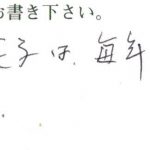 お書き下さい。
子は、毎年